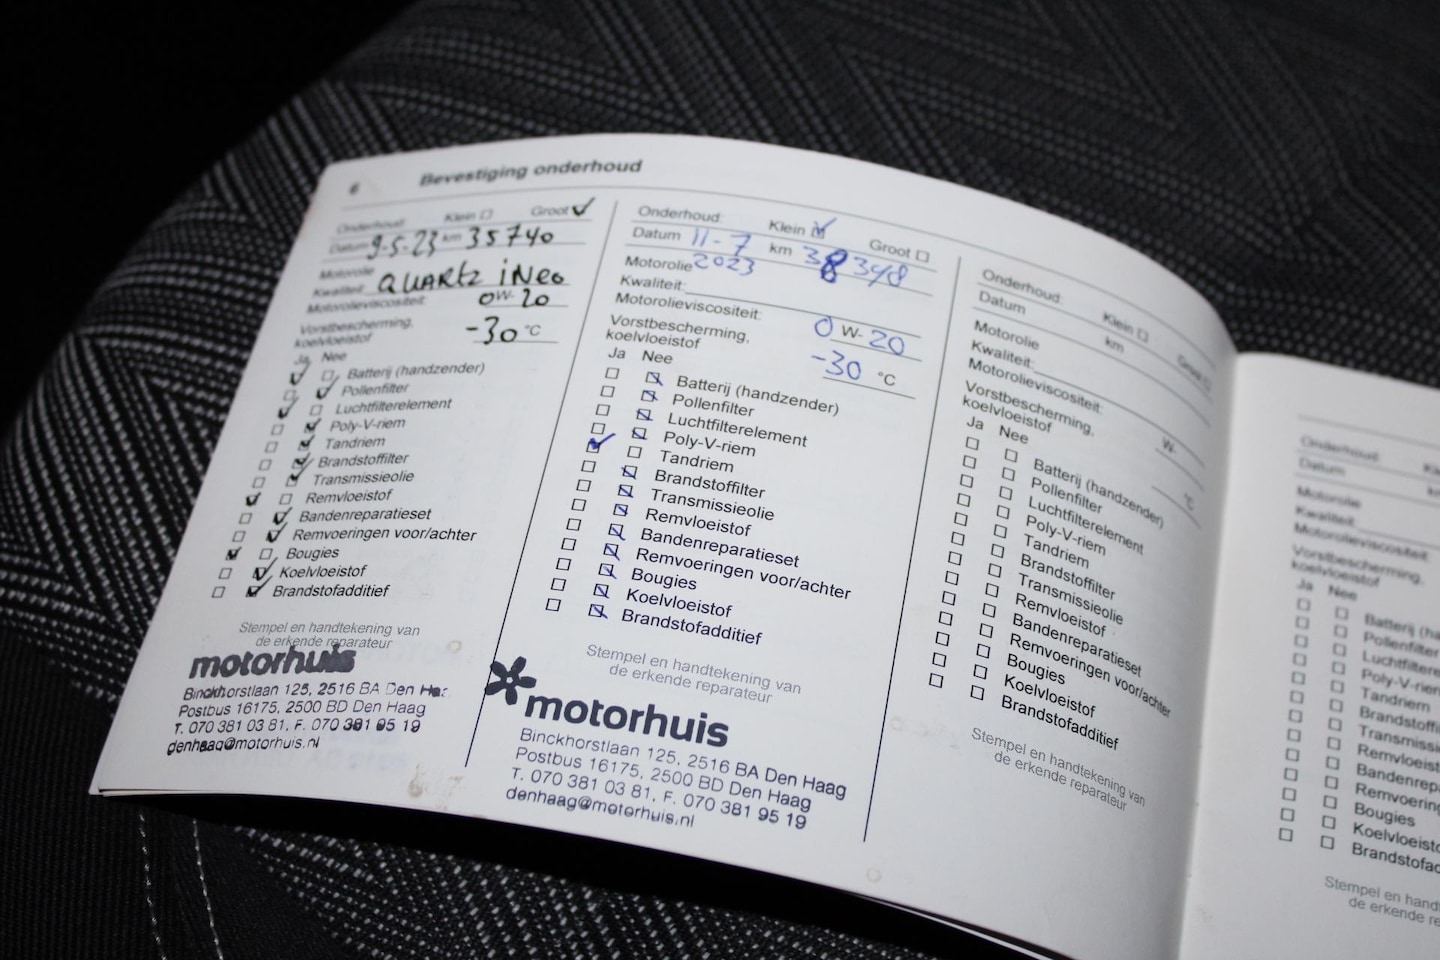 6 Bevestiging onderhoud
Onderhoud: Klein Groot
Datum 9-5-23 km 35740
Motorolie
Kwaliteit: QUARTZ iNEO
Motorolieviscositeit: 0W-20
Vorstbescherming,
koelvloeistof -30 °C
Ja Nee
Batterij (handzender)
Pollenfilter
Luchtfilterelement
Poly-V-riem
Tandriem
Brandstoffilter
Transmissieolie
Remvloeistof
Bandenreparatieset
Remvoeringen voor/achter
Bougies
Koelvloeistof
Brandstofadditief
Stempel en handtekening van
de erkende reparateur
motorhuis
Binckhorstlaan 125, 2516 BA Den Haag
Postbus 16175, 2500 BD Den Haag
T. 070 381 03 81, F. 070 381 95 19
denhaag@motorhuis.nl
Onderhoud: Klein Groot
Datum 11-7 km 38348
Motorolie 2023
Kwaliteit:
Motorolieviscositeit: 0 W-20
Vorstbescherming,
koelvloeistof -30 °C
Ja Nee
Batterij (handzender)
Pollenfilter
Luchtfilterelement
Poly-V-riem
Tandriem
Brandstoffilter
Transmissieolie
Remvloeistof
Bandenreparatieset
Remvoeringen voor/achter
Bougies
Koelvloeistof
Brandstofadditief
Stempel en handtekening van
de erkende reparateur
motorhuis
Binckhorstlaan 125, 2516 BA Den Haag
Postbus 16175, 2500 BD Den Haag
T. 070 381 03 81, F. 070 381 95 19
denhaag@motorhuis.nl
Onderhoud: Klein Groot
Datum km
Motorolie
Kwaliteit:
Motorolieviscositeit: W-
Vorstbescherming,
koelvloeistof °C
Ja Nee
Batterij (handzender)
Pollenfilter
Luchtfilterelement
Poly-V-riem
Tandriem
Brandstoffilter
Transmissieolie
Remvloeistof
Bandenreparatieset
Remvoeringen voor/achter
Bougies
Koelvloeistof
Brandstofadditief
Stempel en handtekening van
de erkende reparateur
Onderhoud:
Datum
Motorolie
Kwaliteit:
Motorolieviscositeit
Vorstbescherming,
koelvloeistof
Ja Nee
Batterij (ha
Pollenfilter
Luchtfiltere
Poly-V-rie
Tandriem
Brandstoffi
Transmissi
Remvloeist
Bandenrepa
Remvoering
Bougies
Koelvloeisto
Brandstofad
Stempel en
de erkende